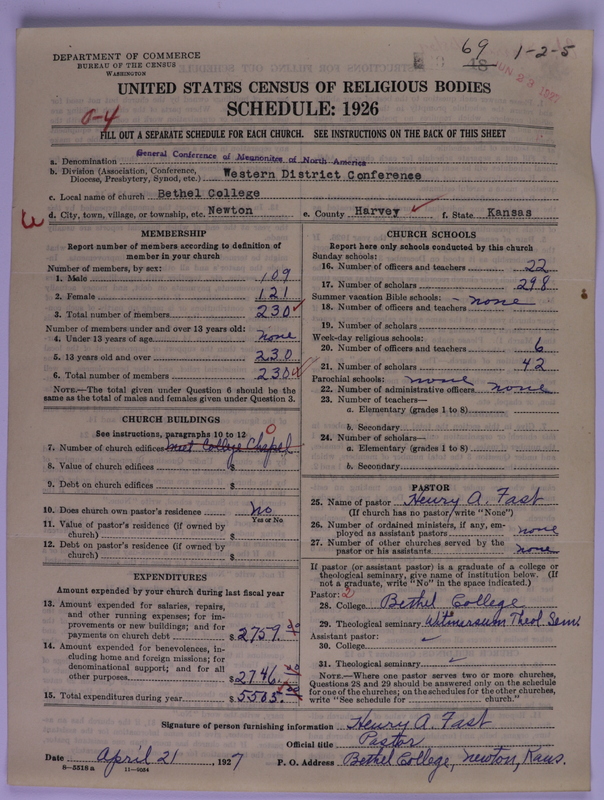 69 1-2-5
DEPARTMENT OF COMMERCE
BUREAU OF THE CENSUS
WASHINGTON
JUN 23 1927
UNITED STATES CENSUS OF RELIGIOUS BODIES
SCHEDULE: 1926
0-4
FILL OUT A SEPARATE SCHEDULE FOR EACH CHURCH. SEE INSTRUCTIONS ON THE BACK OF THIS SHEET
a. Denomination General Conference of Mennonites of North America
b. Division (Association, Conference, Diocese, Presbytery, Synod, etc.) Western District Conference
c. Local name of church Bethel College
d. City, town, village, or township, etc. Newton e. County Harvey f. State Kansas
MEMBERSHIP
Report number of members according to definition of
member in your church
Number of members, by sex:
1. Male 109
2. Female 121
3. Total number of members 230
Number of members under and over 13 years old:
4. Under 13 years of age none
5. 13 years old and over 230
6. Total number of members 230
NOTE.—The total given under Question 6 should be
same as the total of males and females given under Question 3.
CHURCH BUILDINGS
See instructions, paragraphs 10 to 12
7. Number of church edifices meet College Chapel 0
8. Value of church edifices $
9. Debt on church edifices $
10. Does church own pastor's residence No
Yes or No
11. Value of pastor's residence (if owned by
church) $
12. Debt on pastor's residence (if owned by
church) $
EXPENDITURES
Amount expended by your church during last fiscal year
13. Amount expended for salaries, repairs,
and other running expenses; for im-
provements or new buildings; and for
payments on church debt $2759.
14. Amount expended for benevolences, in-
cluding home and foreign missions; for
denominational support; and for all
other purposes $2746.
15. Total expenditures during year $5505.
CHURCH SCHOOLS
Report here only schools conducted by this church
Sunday schools:
16. Number of officers and teachers 22
17. Number of scholars 298
Summer vacation Bible schools: - none
18. Number of officers and teachers
19. Number of scholars
Week-day religious schools:
20. Number of officers and teachers 6
21. Number of scholars 42
Parochial schools: none
22. Number of administrative officers none
23. Number of teachers—
a. Elementary (grades 1 to 8)
b. Secondary
24. Number of scholars—
a. Elementary (grades 1 to 8)
b. Secondary
PASTOR
25. Name of pastor Henry A. Fast
(If church has no pastor, write "None")
26. Number of ordained ministers, if any, em-
ployed as assistant pastors none
27. Number of other churches served by the
pastor or his assistants none
If pastor (or assistant pastor) is a graduate of a college or
theological seminary, give name of institution below. (If
not a graduate, write "No" in the space indicated.)
Pastor: 2
28. College Bethel College
29. Theological seminary Witmarsum Theol. Sem.
Assistant pastor:
30. College
31. Theological seminary
NOTE.—Where one pastor serves two or more churches,
Questions 28 and 29 should be answered only on the schedule
for one of the churches; on the schedules for the other churches,
write "See schedule for church."
Signature of person furnishing information Henry A. Fast
Official title Pastor
Date April 21, 1927 P. O. Address Bethel College, Newton, Kans.
8-5518 a 11-9084